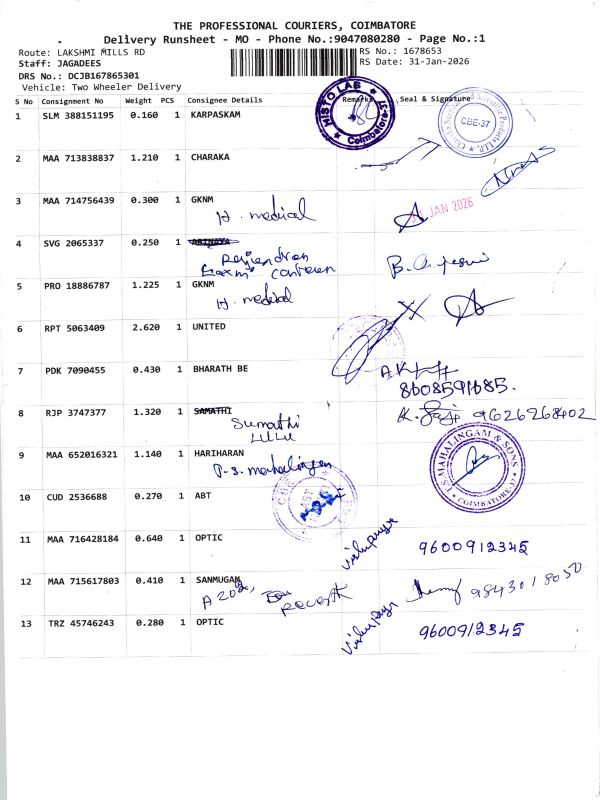 THE PROFESSIONAL COURIERS, COIMBATORE
Delivery Runsheet - MO - Phone No.:9047080280 - Page No.:1
Route: LAKSHMI MILLS RD
RS No.: 1678653
Staff: JAGADEES
RS Date: 31-Jan-2026
DRS No.: DCJB167865301
Vehicle: Two Wheeler Delivery
S No Consignment No Weight PCS Consignee Details Remarks Seal & Signature
HISTO LAB
Coimbatore-37
CBE-37
1 SLM 388151195 0.160 1 KARPASKAM
2 MAA 713838837 1.210 1 CHARAKA
3 MAA 714756439 0.300 1 GKNM
H. medical
JAN 2026
4 SVG 2065337 0.250 1 ABINAYA
Rajendran
Laxmi canteen
5 PRO 18886787 1.225 1 GKNM
H. medical
6 RPT 5063409 2.620 1 UNITED
7 PDK 7090455 0.430 1 BHARATH BE
8608591685.
8 RJP 3747377 1.320 1 SAMATHI
Sumathi
LULU
9626268402
9 MAA 652016321 1.140 1 HARIHARAN
P.S. mahalingam
MAHALINGAM & SONS
COIMBATORE-37
10 CUD 2536688 0.270 1 ABT
11 MAA 716428184 0.640 1 OPTIC
9600912345
12 MAA 715617803 0.410 1 SANMUGAM
A 202,
9843018050
13 TRZ 45746243 0.280 1 OPTIC
9600912345